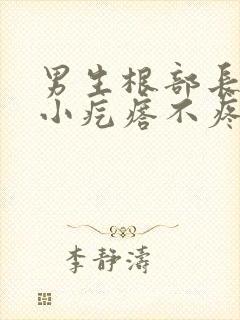 男生根部長
小疙瘩不疼
李靜濤